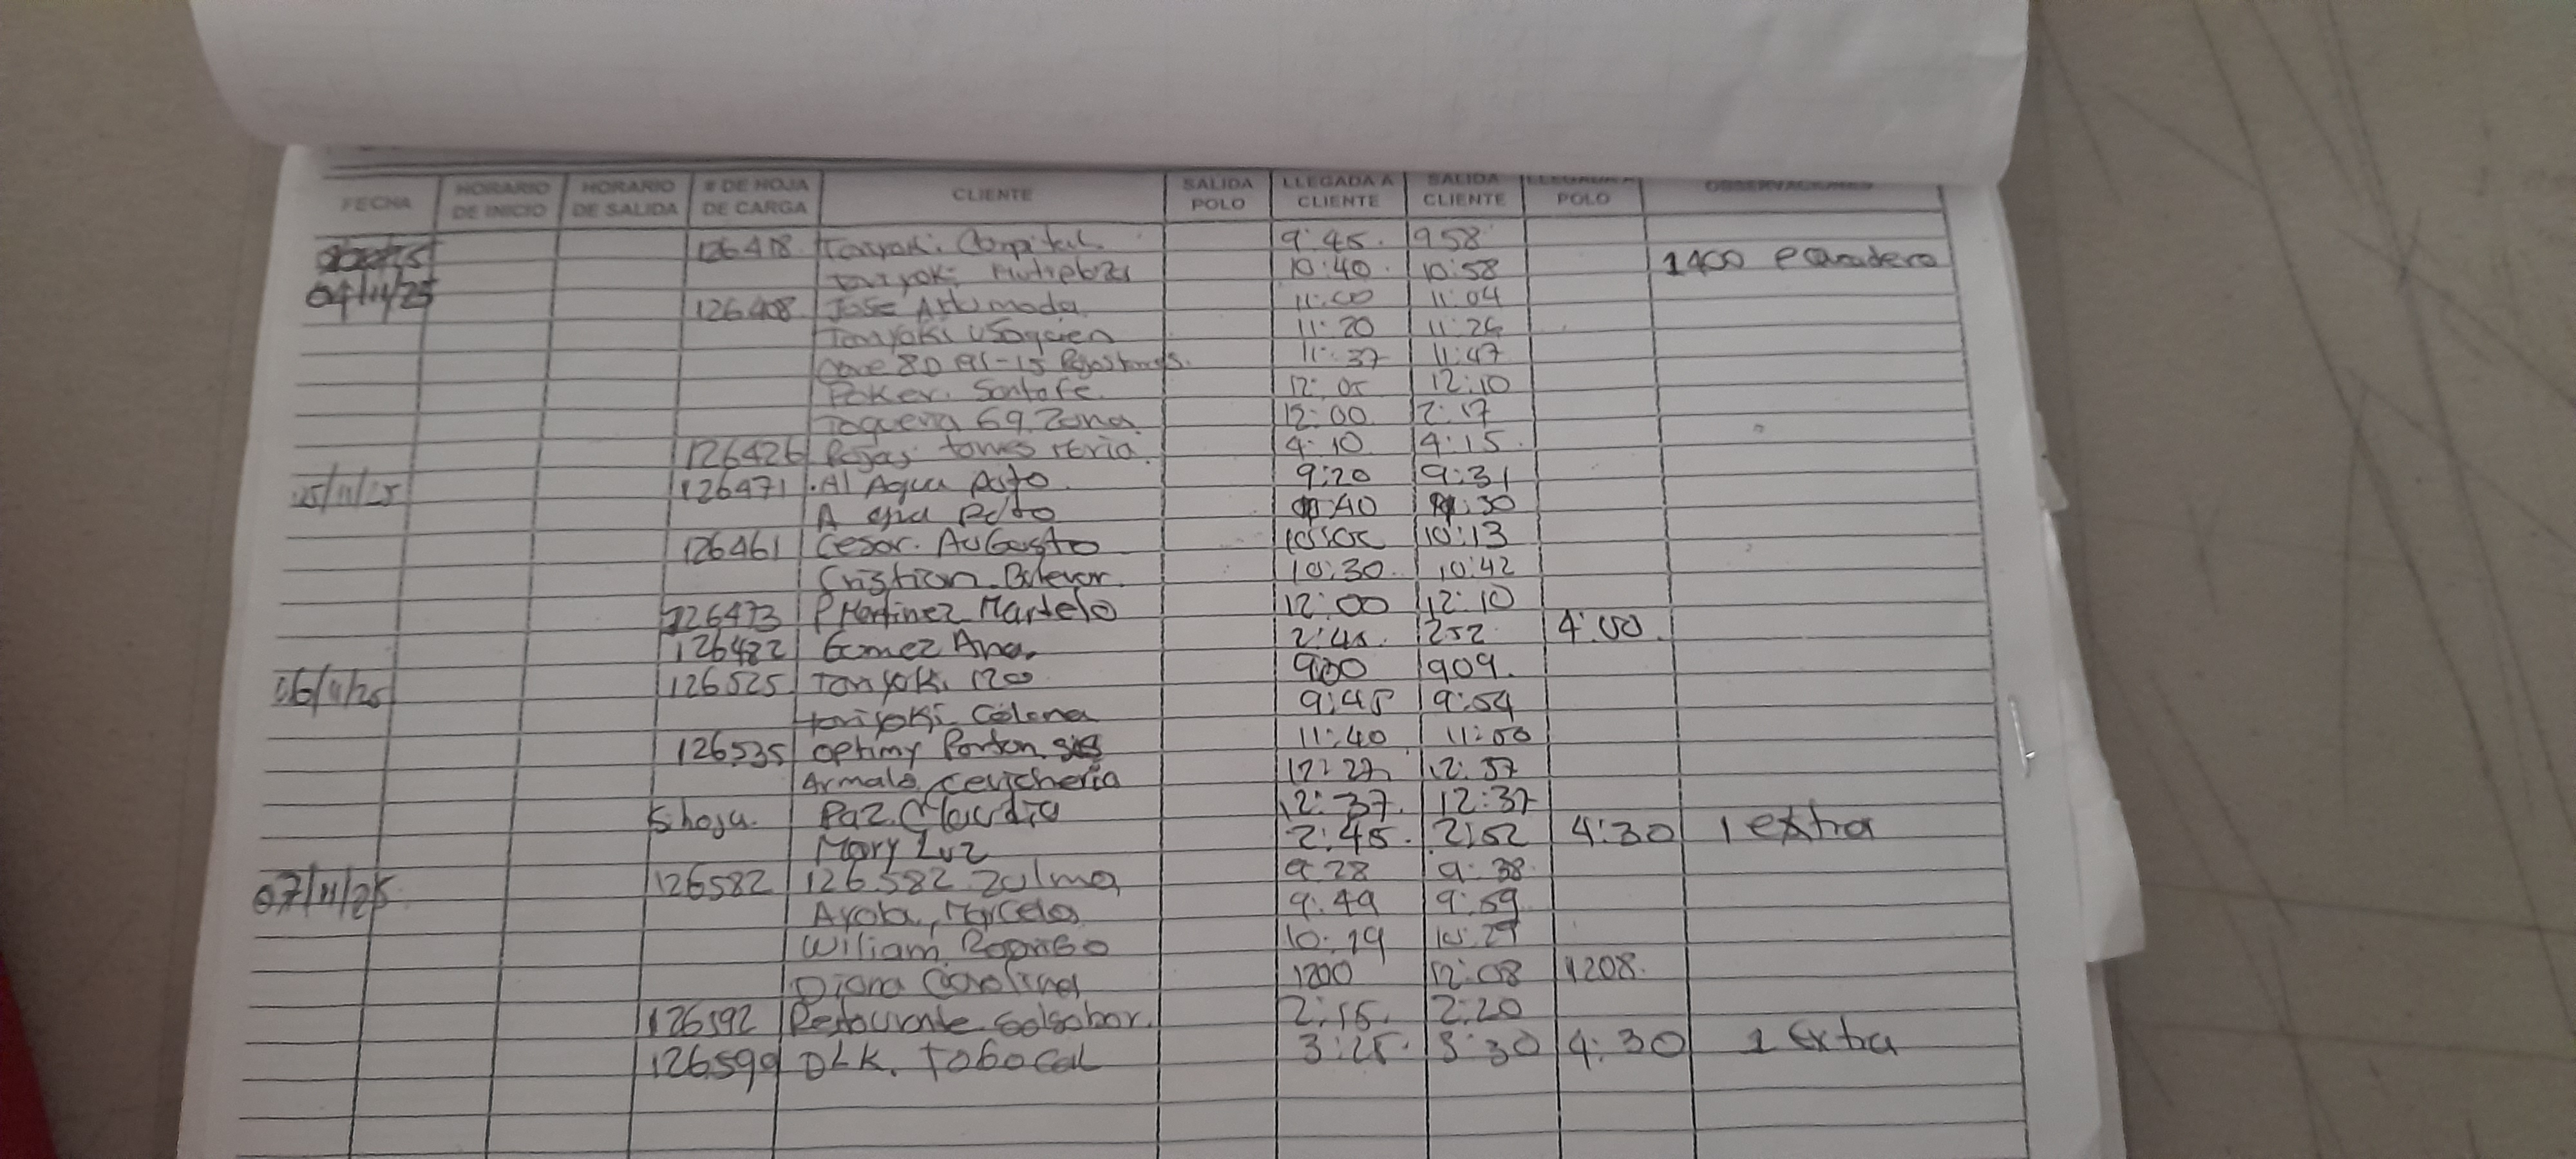 FECHA HORARIO DE INICIO HORARIO DE SALIDA # DE HOJA DE CARGA CLIENTE SALIDA POLO LLEGADA A CLIENTE SALIDA CLIENTE LLEGADA A POLO OBSERVACIONES
126418 9:45. 958
10:40. 10:58 1400
04/11/25 126408 Jose 11:00 11:04
11:20 11:26
80 91-15 11:37 11:47
Poker. Santafe. 12:05 12:10
69. Zona. 12:00 2:17
126426 Rojas torres 4:10 4:15.
05/11/25 126471 Al Agua Pato. 9:20 9:31
A Pato :40 :30
126461 Cesar. AuGusto 10:13
Cristian. 10:30. 10:42
126473 P Martinez Martelo 12:00 12:10
126482 Gomez Ana. 2:45. 252. 4:00.
06/11/25 126525 120 900 909.
Colona 9:45 9:54
126535 optimy Porton 11:40 11:50
Armale cevicheria 12:27 12:37
hoja. Paz. Claudia 12:37. 12:37
Mary Luz 2:45. 2:52 4:30 1 extra
07/11/25 126582 126582 Zulma 9:28 9:38.
Ayola, Marcela 9:49 9:59
Wiliam 10:19 10:29
Diana Carolina 1200 12:08 1208.
126592 Restaurante 2:15. 2:20
126599 DLK. 3:25. 3:30 4:30 1 extra